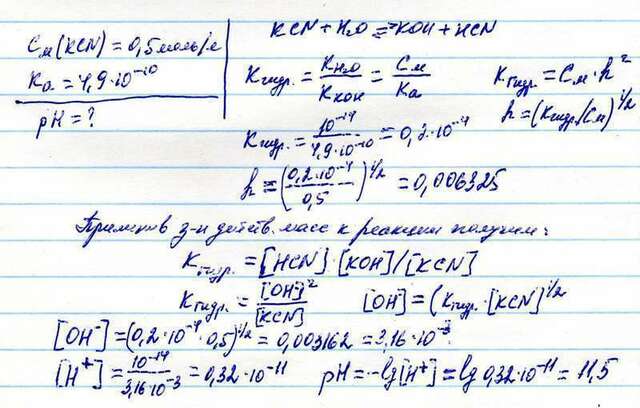 KCN + H₂O ⇄ KOH + HCN
Cм(KCN) = 0,5 моль/л
Kа = 4,9·10⁻¹⁰
pH = ?
Kгидр. = Kн₂о/Kкон = Cм/Kа
Kгидр. = Cм·h²
h = (Kгидр./Cм)^1/2
Kгидр. = 10⁻¹⁴/4,9·10⁻¹⁰ = 0,2·10⁻⁴
h = (0,2·10⁻⁴/0,5)^1/2 = 0,006325
Применив з-н действ. масс к реакции получим:
Kгидр. = [HCN]·[KOH]/[KCN]
Kгидр. = [OH]²/[KCN] [OH] = (Kгидр.·[KCN]^1/2
[OH⁻] = (0,2·10⁻⁴·0,5)^1/2 = 0,003162 = 3,16·10⁻³
[H⁺] = 10⁻¹⁴/3,16·10⁻³ = 0,32·10⁻¹¹ pH = -lg[H⁺] = lg 0,32·10⁻¹¹ = 11,5